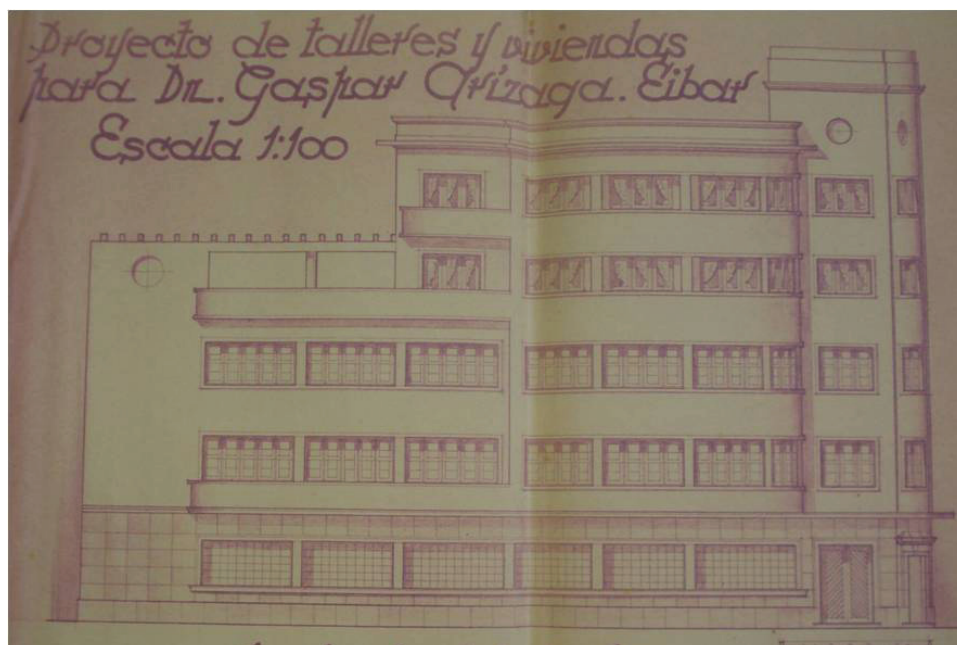 Proyecto de talleres y viviendas
para Dn. Gaspar Arizaga. Eibar
Escala 1:100